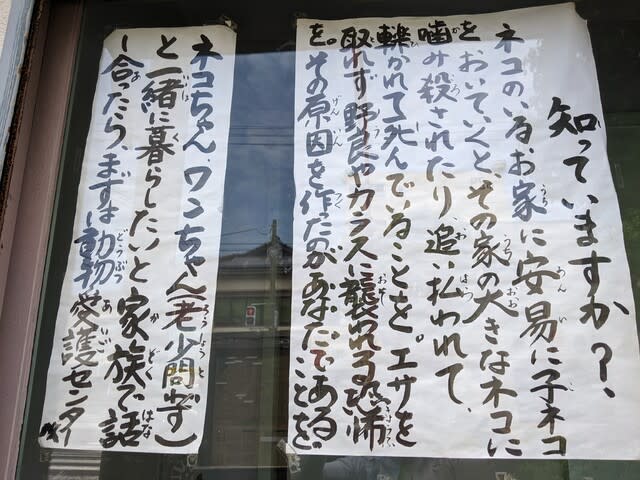 知っていますか?、
ネコのいるお家に安易に子ネコ
をおいていくと、その家の大きなネコに
噛み殺されたり、追い払われて、
轢かれて死んでいることを。エサを
取れず野良やカラスに襲れる恐怖
を。その原因を作ったのがあなたであることを
ネコちゃん、ワンちゃん(老少問わず)
と一緒に暮らしたいと家族で話
し合ったら、まずは動物愛護センター